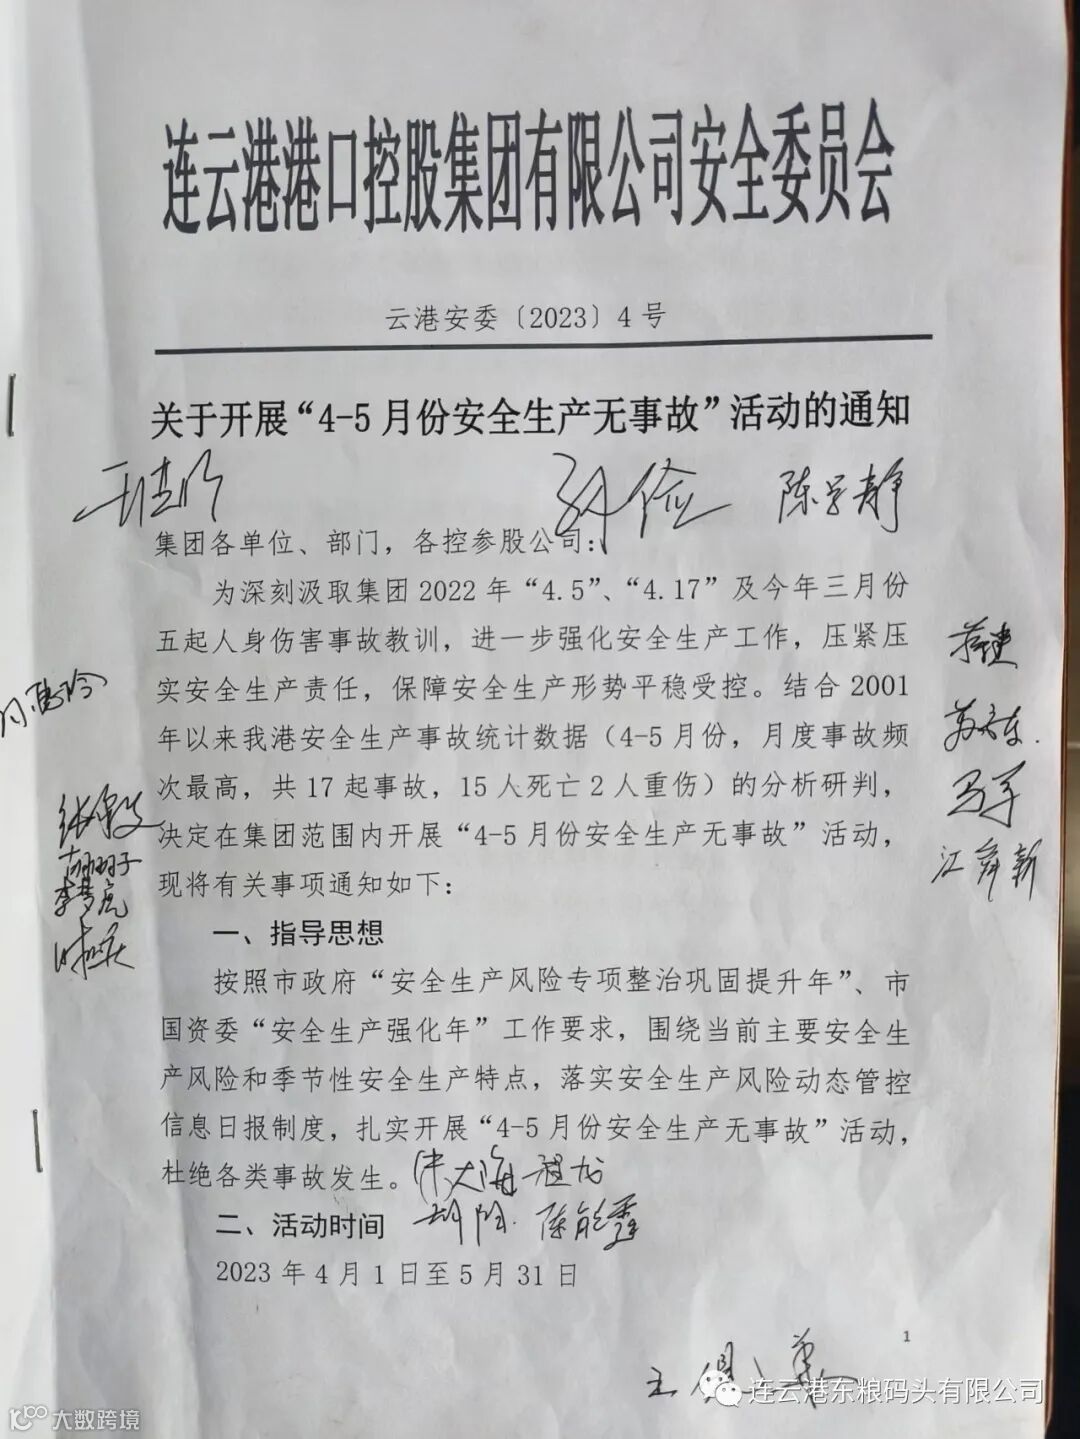 连云港港口控股集团有限公司安全委员会
云港安委〔2023〕4号
关于开展“4-5月份安全生产无事故”活动的通知
孙俭 陈学静
集团各单位、部门，各控参股公司：
为深刻汲取集团2022年“4.5”、“4.17”及今年三月份
五起人身伤害事故教训，进一步强化安全生产工作，压紧压
实安全生产责任，保障安全生产形势平稳受控。结合2001
年以来我港安全生产事故统计数据（4-5月份，月度事故频
次最高，共17起事故，15人死亡2人重伤）的分析研判，
决定在集团范围内开展“4-5月份安全生产无事故”活动，
现将有关事项通知如下：
一、指导思想
按照市政府“安全生产风险专项整治巩固提升年”、市
国资委“安全生产强化年”工作要求，围绕当前主要安全生
产风险和季节性安全生产特点，落实安全生产风险动态管控
信息日报制度，扎实开展“4-5月份安全生产无事故”活动，
杜绝各类事故发生。
二、活动时间
陈能鑫
2023年4月1日至5月31日
1
连云港东粮码头有限公司
大数跨境